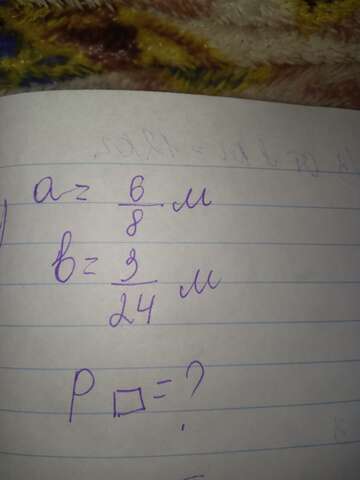 a = 6/8 м
b = 3/24 м
P□ = ?